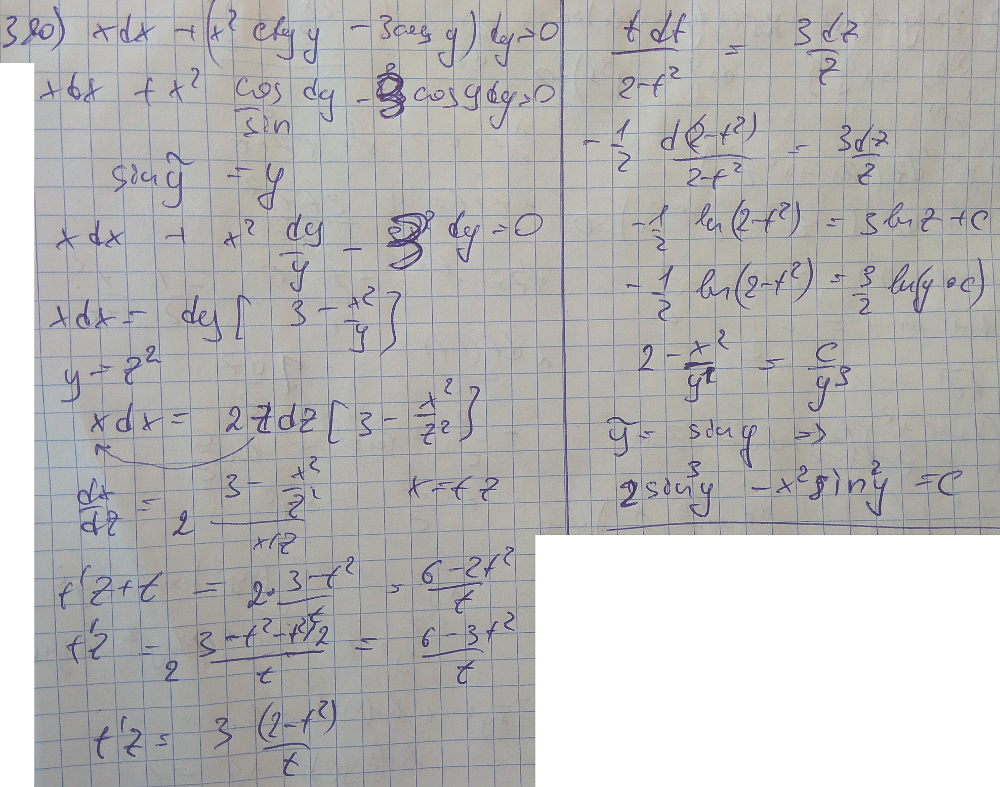 380) xdx + (x² ctg y - 3cos y) dy = 0
xdx + x² cos/sin dy - 3 cos y dy = 0
sin ỹ = y
xdx + x² dy/y - 3 dy = 0
xdx = dy [ 3 - x²/y ]
y = z²
xdx = 2zdz [ 3 - x²/z² ]
dx/dz = 2 (3 - x²/z²)/(x/z) x = tz
t'z + t = 2 · (3 - t²)/t = (6 - 2t²)/t
t'z = 2 (3 - t² - t²/2)/t = (6 - 3t²)/t
t'z = 3 (2 - t²)/t
tdt/(2 - t²) = 3dz/z
-1/2 d(2 - t²)/(2 - t²) = 3dz/z
-1/2 ln(2 - t²) = 3 ln z + C
-1/2 ln(2 - t²) = 3/2 ln(y · c)
2 - x²/y = C/y³
ỹ = sin y ⇒
2 sin³ y - x² sin² y = C